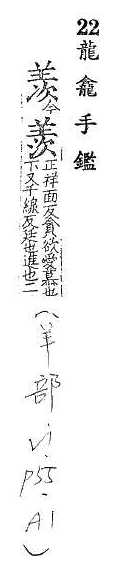 22龍龕手鑑
羡今羨正祥面反貪欲愛慕也
下又千線反延也進也二
(羊部.vi.p55.A1)